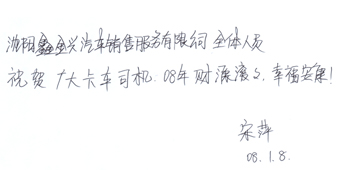 沈阳鑫金兴汽车销售服务有限公司 全体人员
祝贺 十大卡车司机. 08年 财源滚滚, 幸福安康!
宋萍
08.1.8.